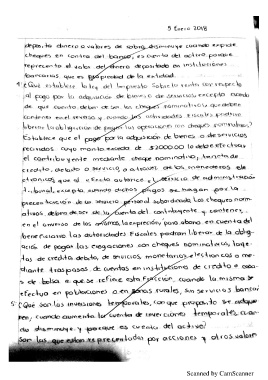 5 Enero 2018
deposito dinero o valores de sobra, disminuye cuando expide
cheques en contra del banco, es cuenta del activo porque
representa el valor del dinero depositado en instituciones
bancarias que es propiedad de la entidad.
4.- ¿Que establece la ley del Impuesto Sobre la renta con respecto
al pago por la adquisicion de bienes o de servicios excepto cuando
de que cuenta deben de ser los cheques nominativos, que deben
contener en el reverso y cuando las autoridades fiscales podrian
liberar la obligacion de pagar las operaciones con cheques nominativos?
Establece que el pago por la adquisicion de bienes o de servicios
cuyo monto exceda de $2000.00 lo debe efectuar
el contribuyente mediante cheque nominativo, tarjeta de
credito, debito o servicio, o a traves de los monederos ele
ctronicos que al efecto autorice el servicio de administracion
tributaria, excepto cuando dichos pagos se hagan por la
prestacion de un servicio personal subordinado los cheques nomi
nativos deben de ser de la cuenta del contribuyente y contener,
en el anverso de los mismos, la expresion para abono en cuenta del
beneficiario las autoridades fiscales podran liberar de la obli
gacion de pagar las erogaciones con cheques nominativos, tarje
tas de credito, debito, de servicios, monederos electronicos o me
diante traspasos de cuentas en instituciones de credito o casas
de bolsa a que se refiere esta fraccion, cuando la misma se
efectua en poblaciones o en zonas rurales, sin servicios bancarios
5.- ¿Que son las inversiones temporales, con que proposito se adquie
ren, cuando aumenta la cuenta de inversiones temporales, cuan
do disminuye y porque es cuenta del activo?
Son las que estan representadas por acciones y otros valor
Scanned by CamScanner